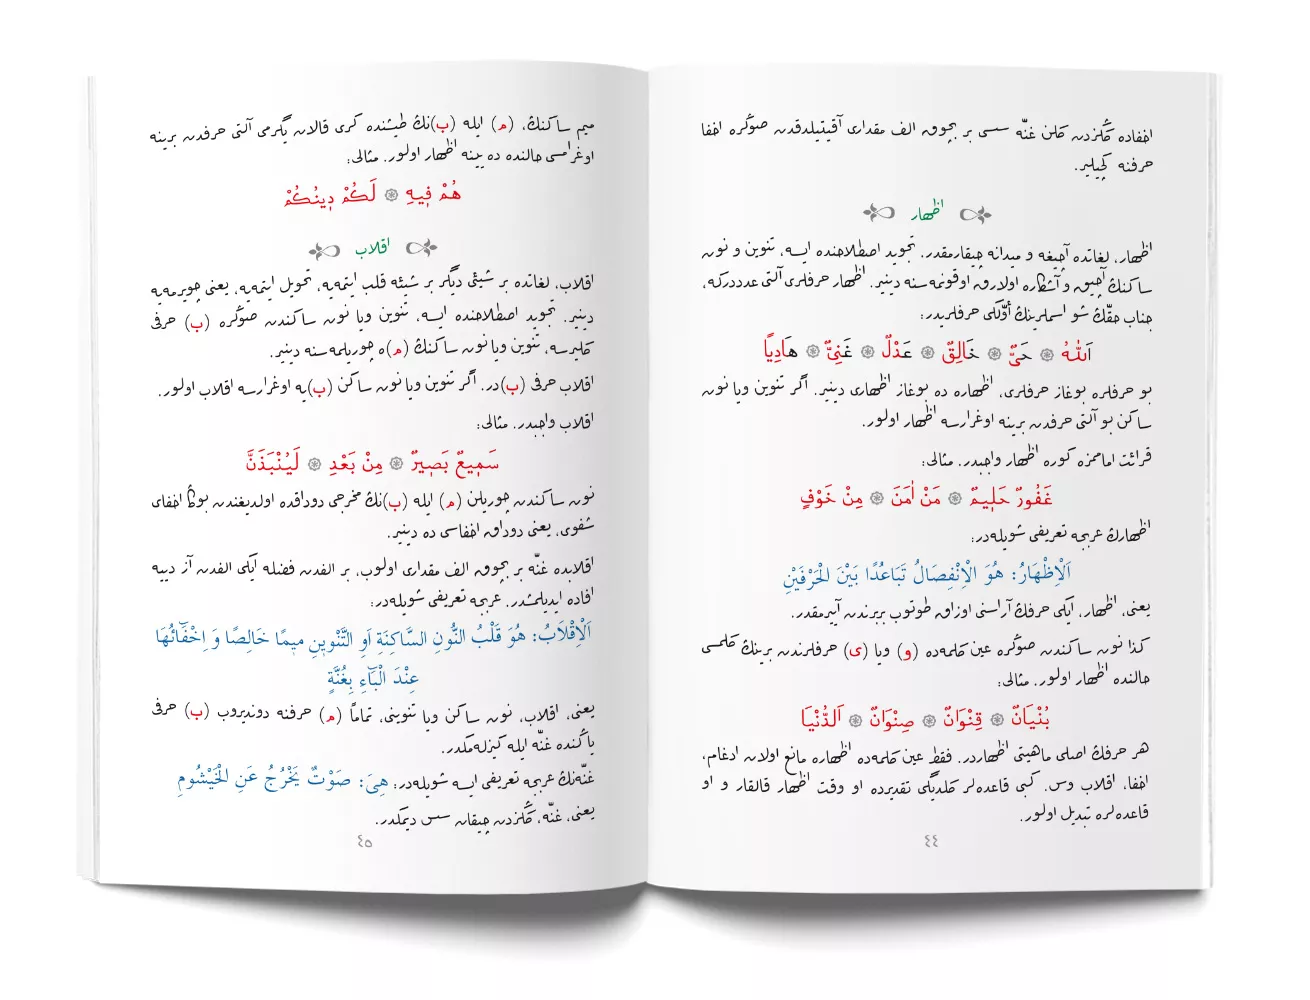 اخفاده گڭزدن گلن غنّه سسی بر بچوق الف مقداری آقیتیلدقدن صوڭره اخفا
حرفنه گچیلیر.
اظهار
اظهار، لغاتده آچیغه و میدانه چیقارمقدر. تجوید اصطلاحنده ایسه، تنوین و نون
ساكنڭ آچیق و آشكاره اولارق اوقونمه‌سنه دینیر. اظهار حرفلری آلتی عدددركه،
جناب حقّڭ شو اسملرینڭ أوّلكی حرفلریدر:
اَللّٰهُ ۞ حَیٌّ ۞ خَالِقٌ ۞ عَدْلٌ ۞ غَنِیٌّ ۞ هَادِیًا
بو حرفلره بوغاز حرفلری، اظهاره ده بوغاز اظهاری دینیر. اگر تنوین ویا نون
ساكن بو آلتی حرفدن برینه اوغرارسه اظهار اولور.
قرائت امامزه كوره اظهار واجبدر. مثالی:
غَفُورٌ حَلِیمٌ ۞ مَنْ اٰمَنَ ۞ مِنْ خَوْفٍ
اظهارڭ عربجه تعریفی شویله‌در:
اَلْاِظْهَارُ: هُوَ الْاِنْفِصَالُ تَبَاعُدًا بَیْنَ الْحَرْفَیْنِ
یعنی، اظهار، ایكی حرفڭ آراسنی اوزاق طوتوب بربرندن آییرمقدر.
كذا نون ساكندن صوڭره عین كلمه‌ده (و) ویا (ی) حرفلرندن برینڭ گلمسی
حالنده اظهار اولور. مثالی:
بُنْیَانٌ ۞ قِنْوَانٌ ۞ صِنْوَانٌ ۞ اَلدُّنْیَا
هر حرفڭ اصلی ماهیتی اظهاردر. فقط عین كلمه‌ده اظهاره مانع اولان ادغام،
اخفا، اقلاب وس. كبی قاعده‌لر گلدیگی تقدیرده او وقت اظهار قالقار و او
قاعده‌لره تبدیل اولور.
٤٤
میم ساكنڭ، (م) ایله (ب)نڭ طیشنده كری قالان یگرمی آلتی حرفدن برینه
اوغرامسی حالنده ده یینه اظهار اولور. مثالی:
هُمْ فِیهِ ۞ لَكُمْ دِینُكُمْ
اقلاب
اقلاب، لغاتده بر شیئی دیگر بر شیئه قلب ایتمه‌یه، تحویل ایتمه‌یه، یعنی چویرمه‌یه
دینیر. تجوید اصطلاحنده ایسه، تنوین ویا نون ساكندن صوڭره (ب) حرفی
گلیرسه، تنوین ویا نون ساكنڭ (م)ه چوریلمه‌سنه دینیر.
اقلاب حرفی (ب)در. اگر تنوین ویا نون ساكن (ب)یه اوغرارسه اقلاب اولور.
اقلاب واجبدر. مثالی:
سَمِیعٌ بَصِیرٌ ۞ مِنْ بَعْدِ ۞ لَیُنْبَذَنَّ
نون ساكندن چوریلن (م) ایله (ب)نڭ مخرجی دوداقده اولدیغندن بوڭا اخفای
شفوی، یعنی دوداق اخفاسی ده دینیر.
اقلابده غنّه بر بچوق الف مقداری اولوب، بر الفدن فضله ایكی الفدن آز دییه
افاده ایدیلمشدر. عربجه تعریفی شویله‌در:
اَلْاِقْلَابُ: هُوَ قَلْبُ النُّونِ السَّاكِنَةِ اَوِ التَّنْوِینِ مِیمًا خَالِصًا وَ اِخْفَٓائُهَا
عِنْدَ الْبَٓاءِ بِغُنَّةٍ
یعنی، اقلاب، نون ساكن ویا تنوینی، تماماً (م) حرفنه دوندیروب (ب) حرفی
یاكنده غنّه ایله كیزله‌مكدر.
غنّه‌نڭ عربجه تعریفی ایسه شویله‌در: هِیَ: صَوْتٌ یَخْرُجُ عَنِ الْخَیْشُومِ
یعنی، غنّه، گڭزدن چیقان سس دیمكدر.
٤٥